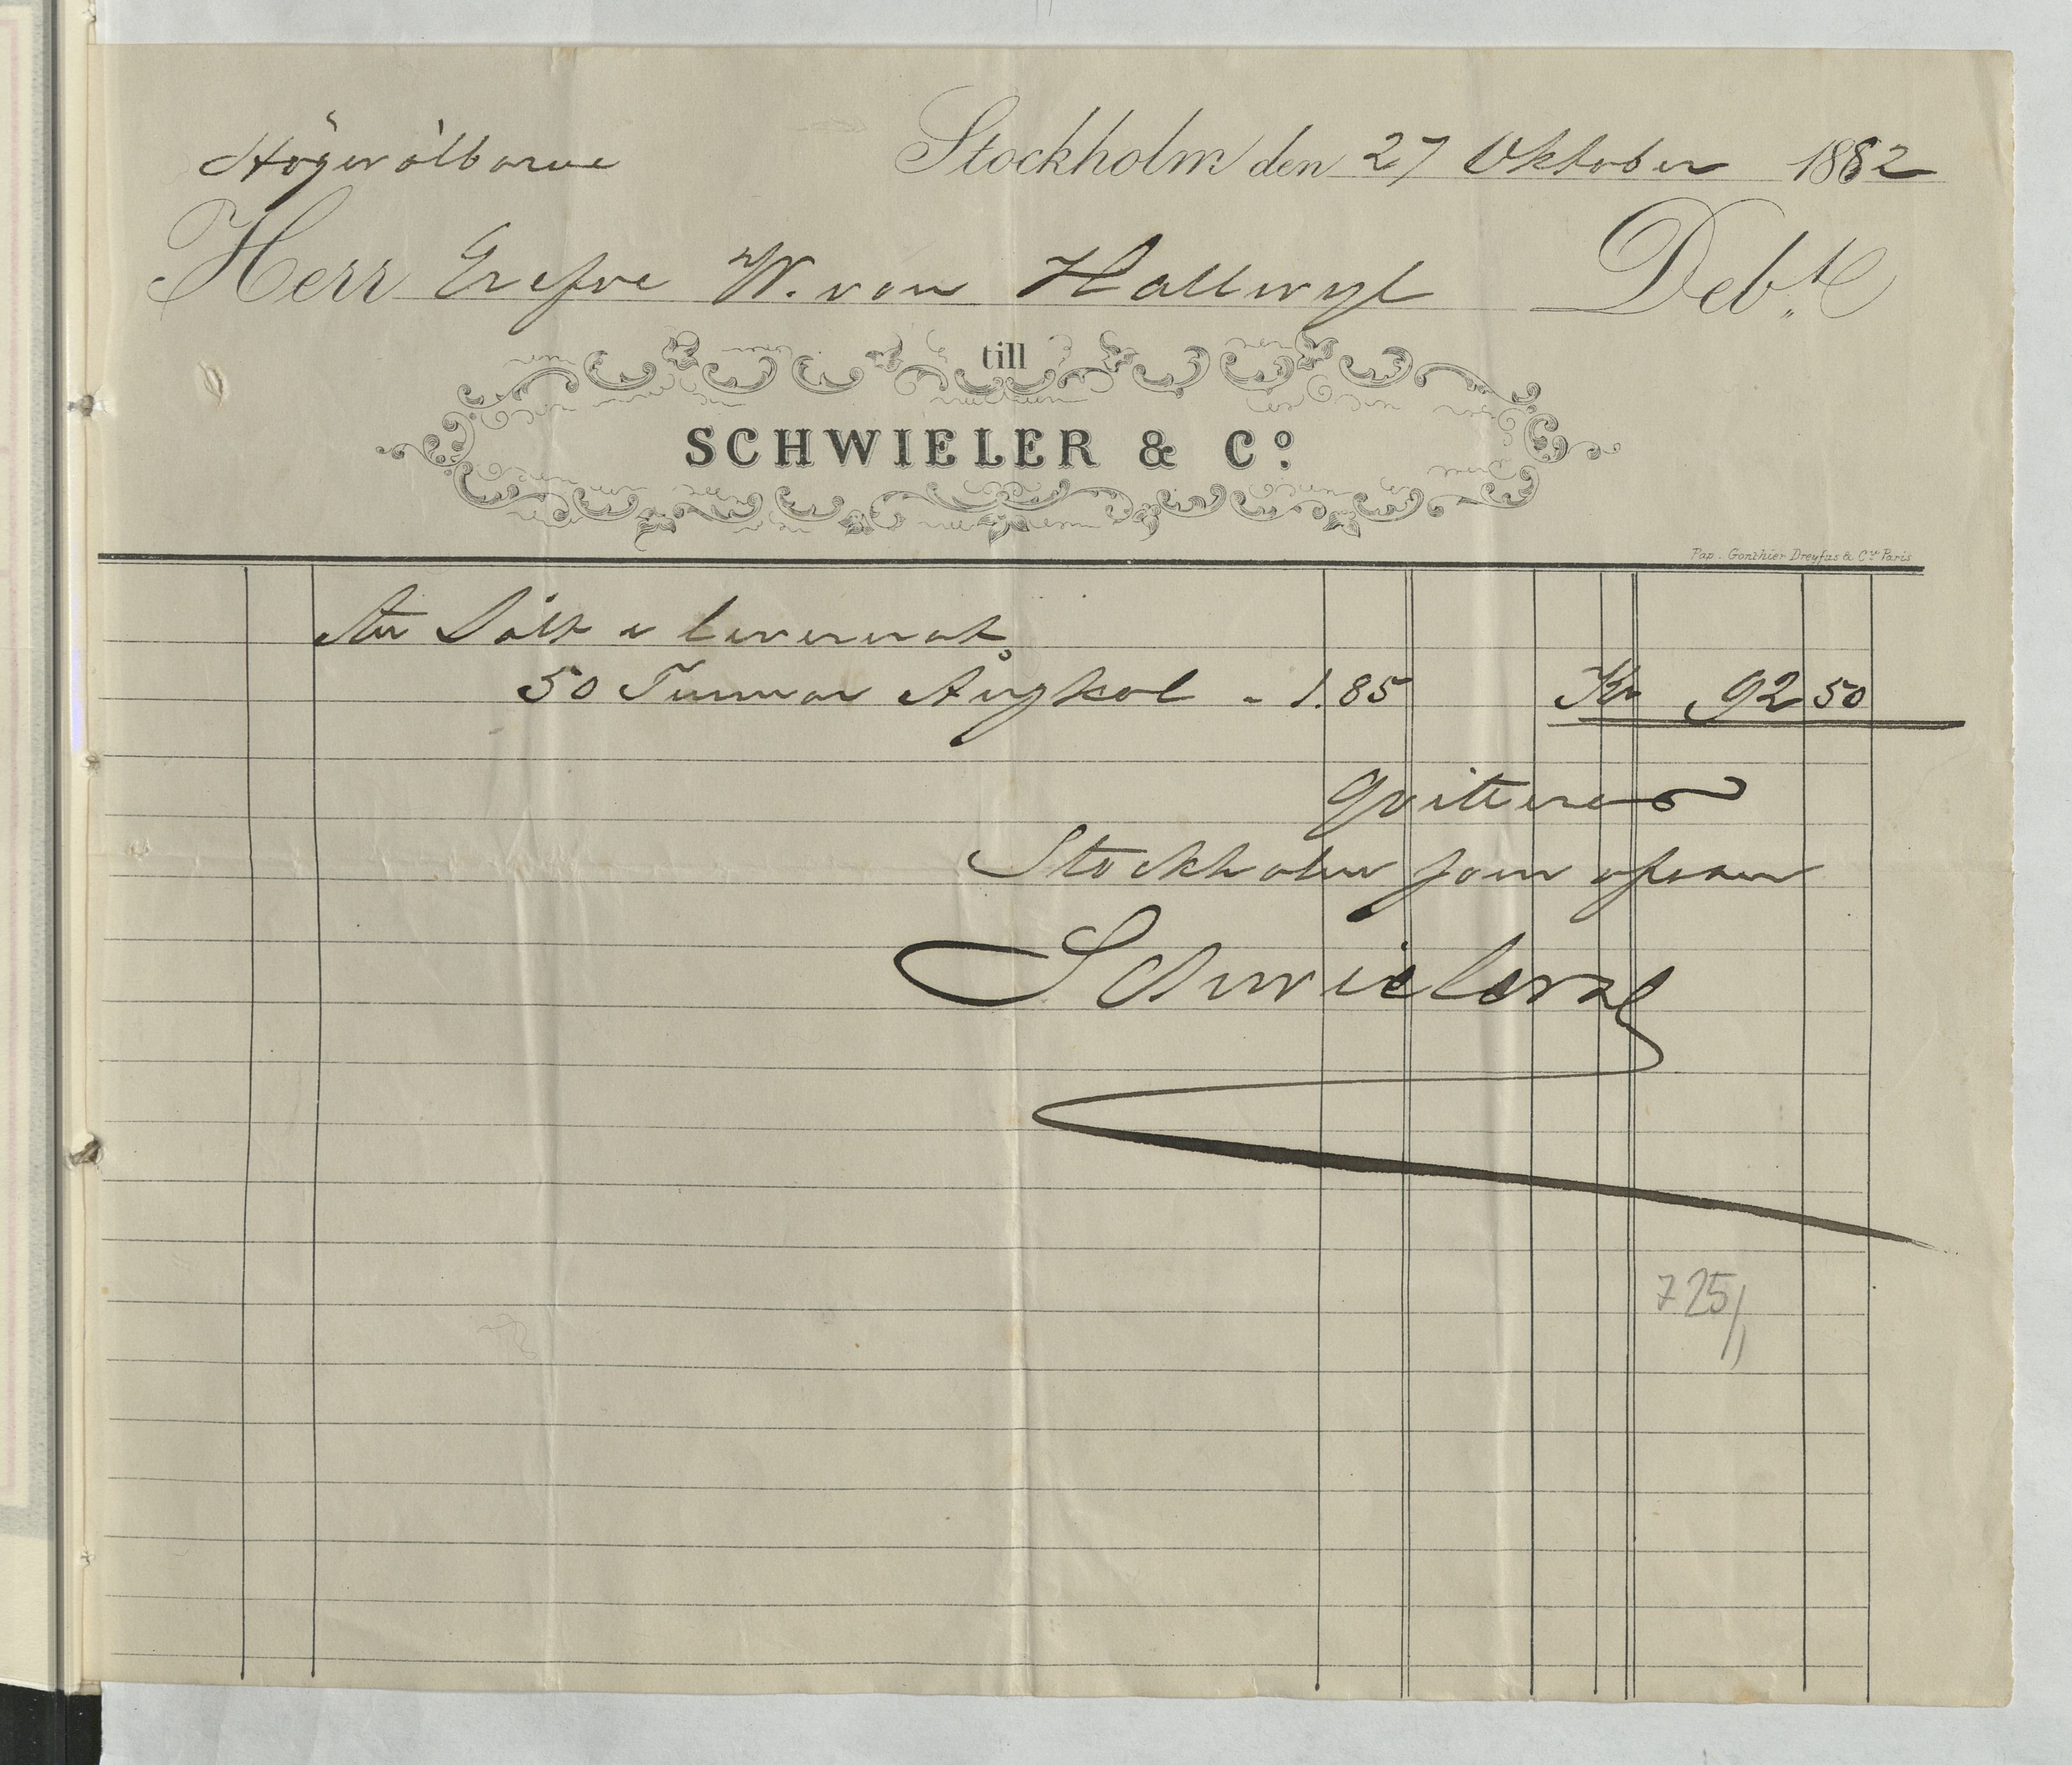 Högvälborne
Stockholm den 27 Oktober 1882
Herr Grefve W. von Hallwyl Debt
till
SCHWIELER & Co
Pap. Gonthier Dreyfus & Cie Paris
Sålt & levererat
50 Tunnor Ångkol - 1.85 Kr 92 50
Qvitteras
Stockholm som ofvan
Schwieler & Co
725